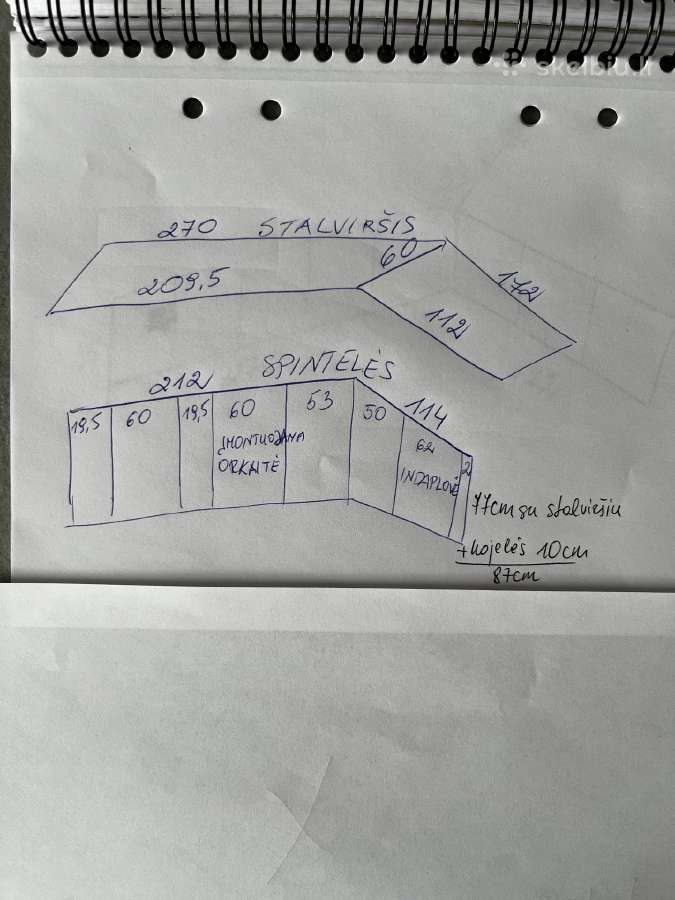 skelbiu.lt
270 STALVIRŠIS
60
209,5
172
112
SPINTELĖS
212
114
19,5 60 19,5 60 53 50 62 2
ĮMONTUOJAMA
ORKAITĖ
INDAPLOVĖ
77cm su stalviršiu
+kojelės 10cm
87cm